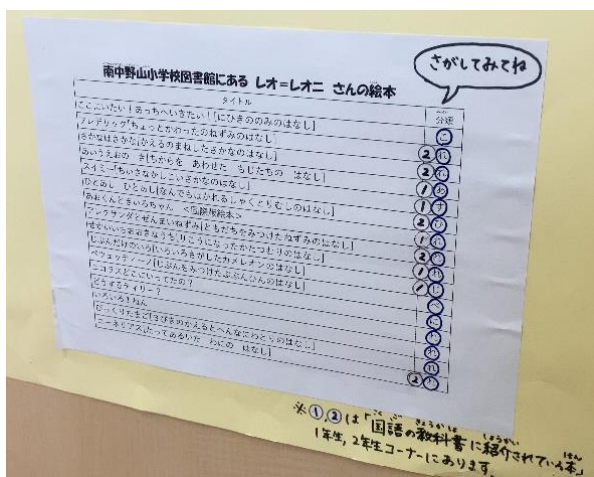 さがしてみてね
南中野山小学校図書館にある レオ=レオニ さんの絵本
タイトル
分類
ここにいたい！あっちへいきたい！[にひきののみのはなし] こ
フレデリック[ちょっとかわったのねずみのはなし] ② れ
さかなはさかな[かえるのまねしたさかなのはなし] ② れ
あいうえおの き[ちからを あわせた もじたちの はなし] ① あ
スイミー[ちいさなかしこいさかなのはなし] ① す
ひとあし ひとあし[なんでもはかれるしゃくとりむしのはなし] ② ひ
あおくんときいろちゃん ① れ
アレクサンダとぜんまいねずみ[ともだちをみつけたねずみのはなし] ② れ
せかいいちおおきなうち[りこうになったかたつむりのはなし] ① れ
じぶんだけのいろ[いろいろさがしたカメレオンのはなし] ① じ
ペツェッティーノ[じぶんをみつけたぶぶんひんのはなし]
ニコラスどこにいってたの？
どうするティリー？
いろいろ1ねん
びっくりたまご[3びきのかえるとへんなにわとりのはなし]
コーネリアス[たってあるいた わにの はなし] ②
※①,②は「国語の教科書に紹介されている本」
1年生,2年生コーナーにあります。